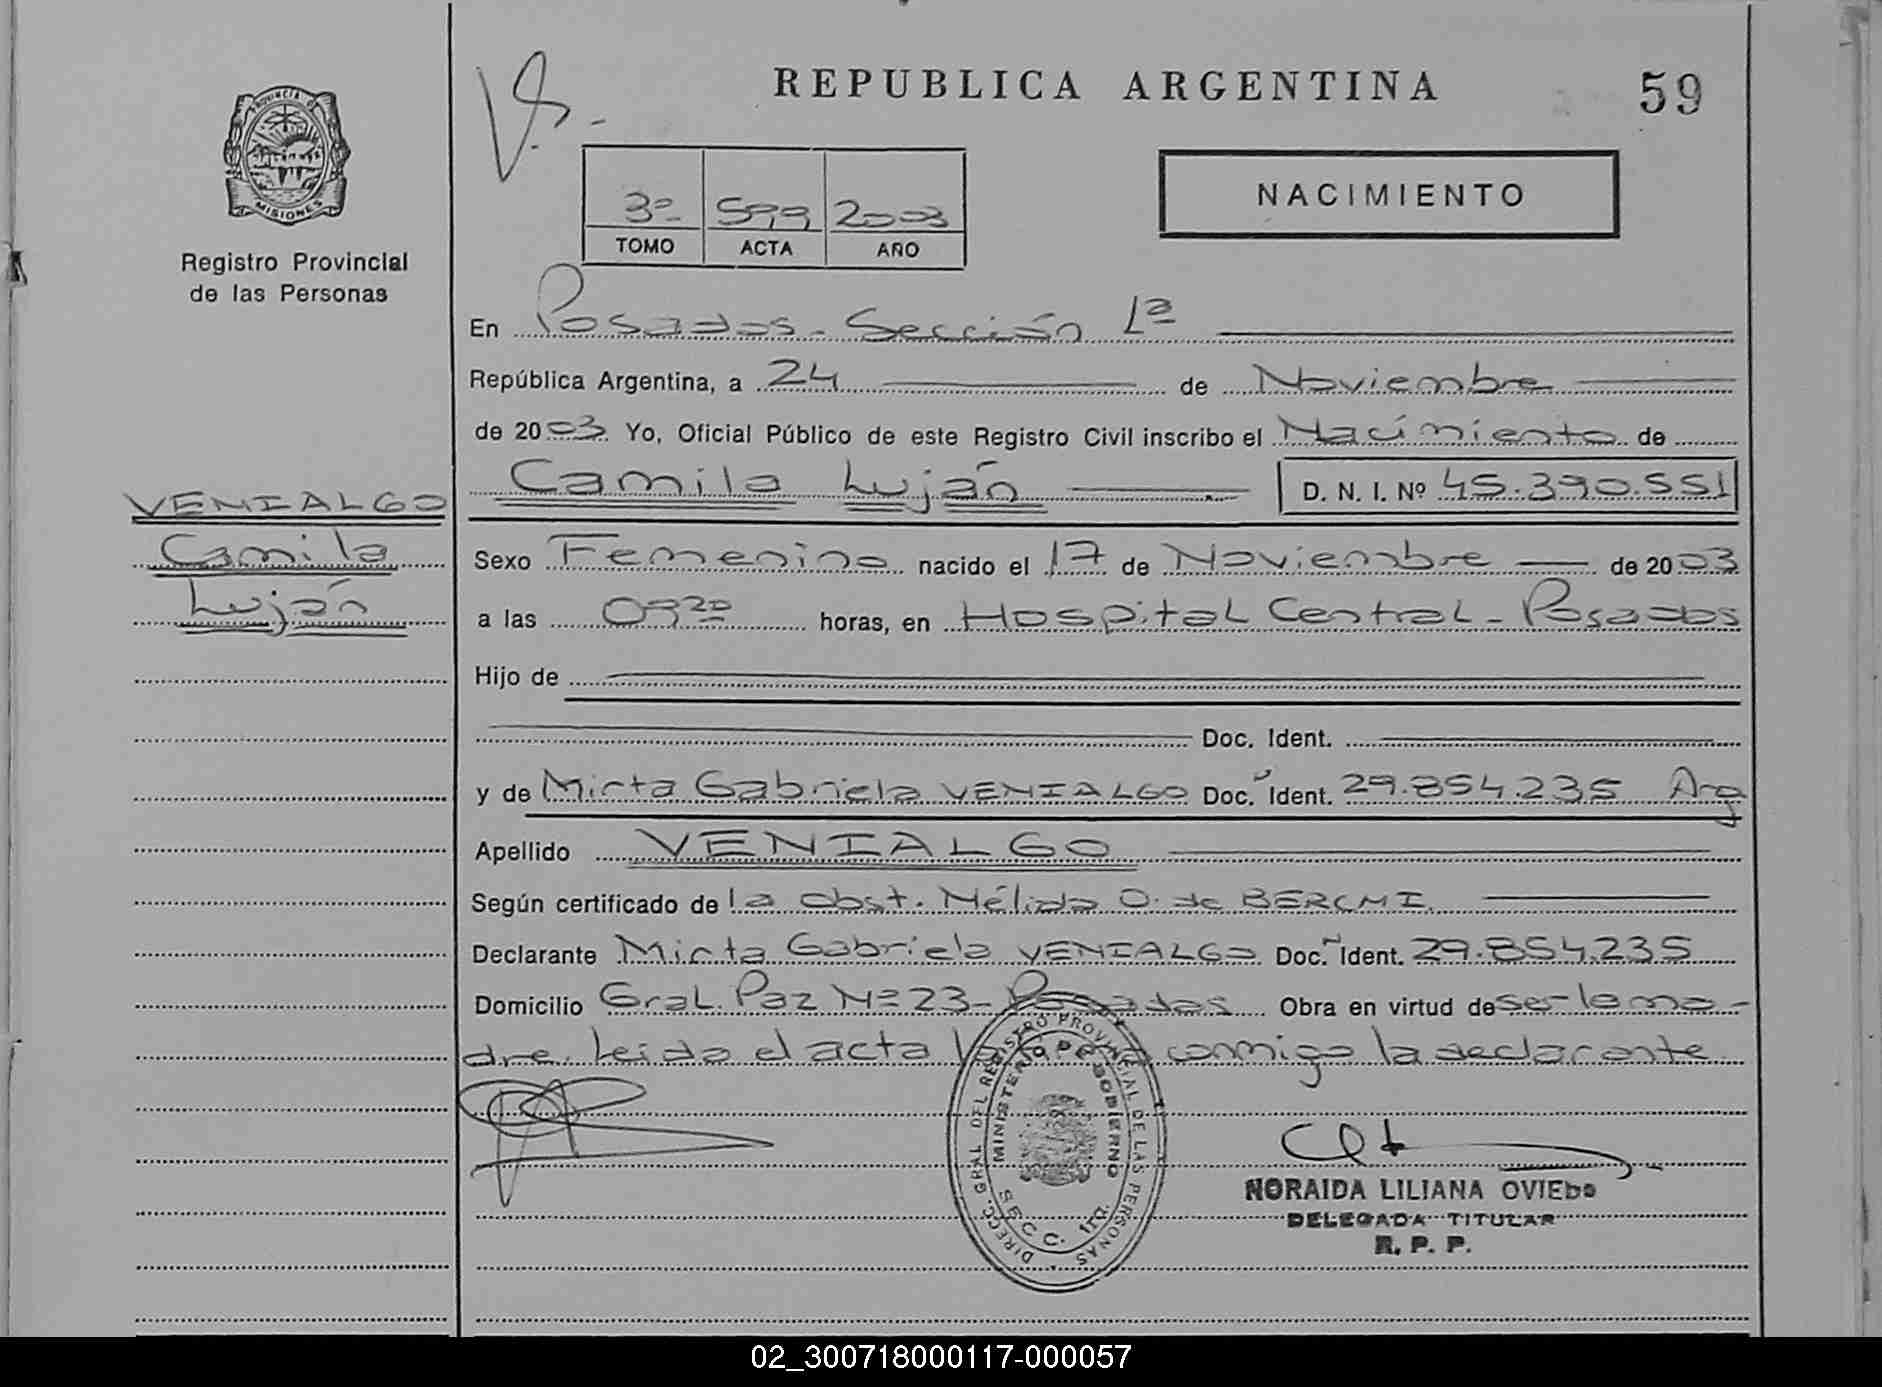 REPUBLICA ARGENTINA
59
PROVINCIA DE
MISIONES
Registro Provincial
de las Personas
3º 599 2003
TOMO ACTA AÑO
NACIMIENTO
En Posadas - Sección 1ª
República Argentina, a 24 de Noviembre
de 2003 Yo, Oficial Público de este Registro Civil inscribo el Nacimiento de
Camila Luján D. N. I. Nº 45.390.551
VENIALGO
Camila
Luján
Sexo Femenino nacido el 17 de Noviembre de 2003
a las 09 20 horas, en Hospital Central - Posadas
Hijo de
Doc. Ident.
y de Mirta Gabriela VENIALGO Doc. Ident. 29.854.235 Arg
Apellido VENIALGO
Según certificado de la obst. Nélida O. de
Declarante Mirta Gabriela VENIALGO Doc. Ident. 29.854.235
Domicilio Gral. Paz Nº 23 - Posadas Obra en virtud de ser la ma-
dre. leida el acta conmigo la declarante
DIRECC. GRAL DEL REGISTRO PROVINCIAL DE LAS PERSONAS
MINISTERIO DE GOBIERNO
SECC. 1ra.
NORAIDA LILIANA OVIEDO
DELEGADA TITULAR
R. P. P.
02_300718000117-000057